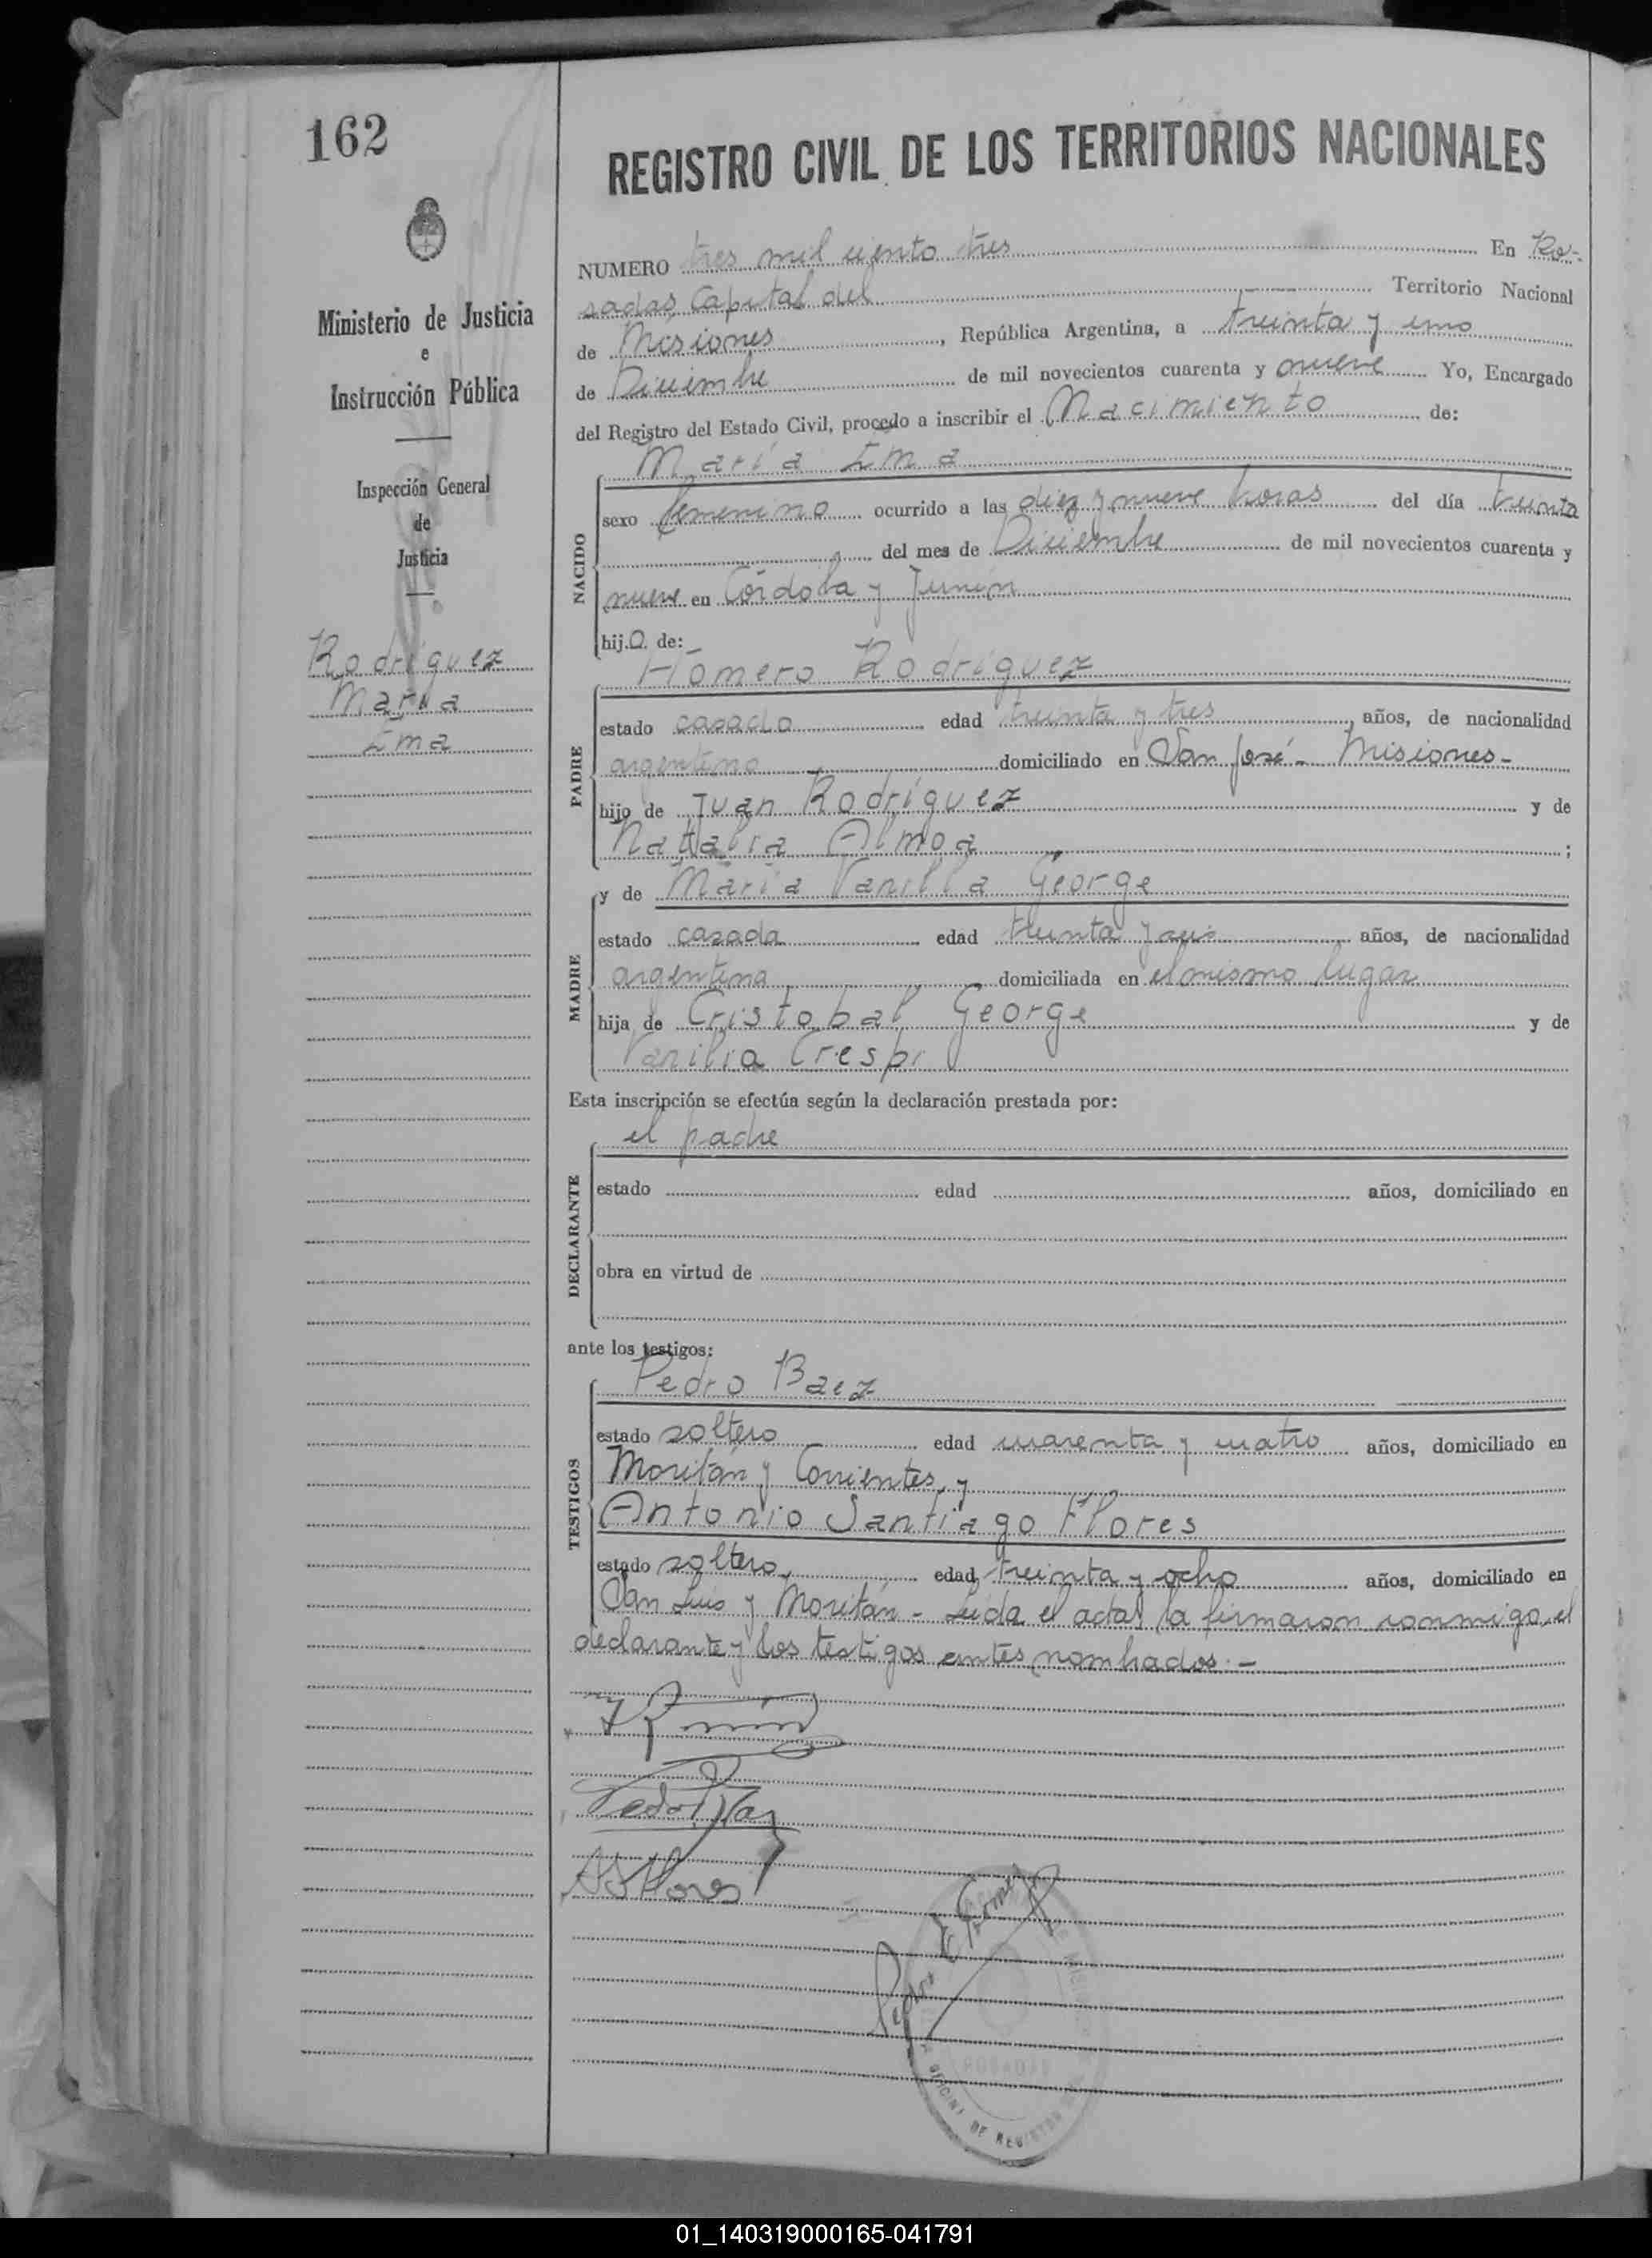 162
REGISTRO CIVIL DE LOS TERRITORIOS NACIONALES
Ministerio de Justicia
e
Instrucción Pública
Inspección General
de
Justicia
Rodríguez
María
Ema
NUMERO tres mil ciento tres En Po-
sadas, Capital del Territorio Nacional
de Misiones, República Argentina, a treinta y uno
de Diciembre de mil novecientos cuarenta y nueve Yo, Encargado
del Registro del Estado Civil, procedo a inscribir el Nacimiento de:
NACIDO
María Ema
sexo femenino ocurrido a las diez y nueve horas del día treinta
del mes de Diciembre de mil novecientos cuarenta y
nueve en Córdoba y Junín
hija de:
PADRE
Homero Rodríguez
estado casado edad treinta y tres, años, de nacionalidad
argentino domiciliado en San José - Misiones -
hijo de Juan Rodríguez y de
Natalia Almoa;
MADRE
y de María Vanilia George
estado casada edad treinta y años, de nacionalidad
argentina domiciliada en el mismo lugar
hija de Cristobal George y de
Vanilia Crespi
Esta inscripción se efectúa según la declaración prestada por:
DECLARANTE
el padre
estado edad años, domiciliado en
obra en virtud de
ante los testigos:
TESTIGOS
Pedro Baez
estado soltero edad cuarenta y cuatro años, domiciliado en
Moritán y Corrientes, y
Antonio Santiago Flores
estado soltero, edad treinta y ocho años, domiciliado en
San Luis y Moritán - Leida el acta, la firmaron conmigo, el
declarante y los testigos antes nombrados. -
Pedro Baez
A S Flores
OFICINA DE REGISTRO
POSADAS
01_140319000165-041791